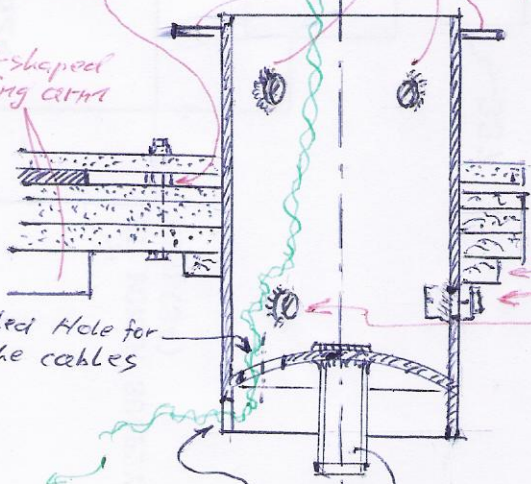 -shaped
ng arm
Hole for
he cables